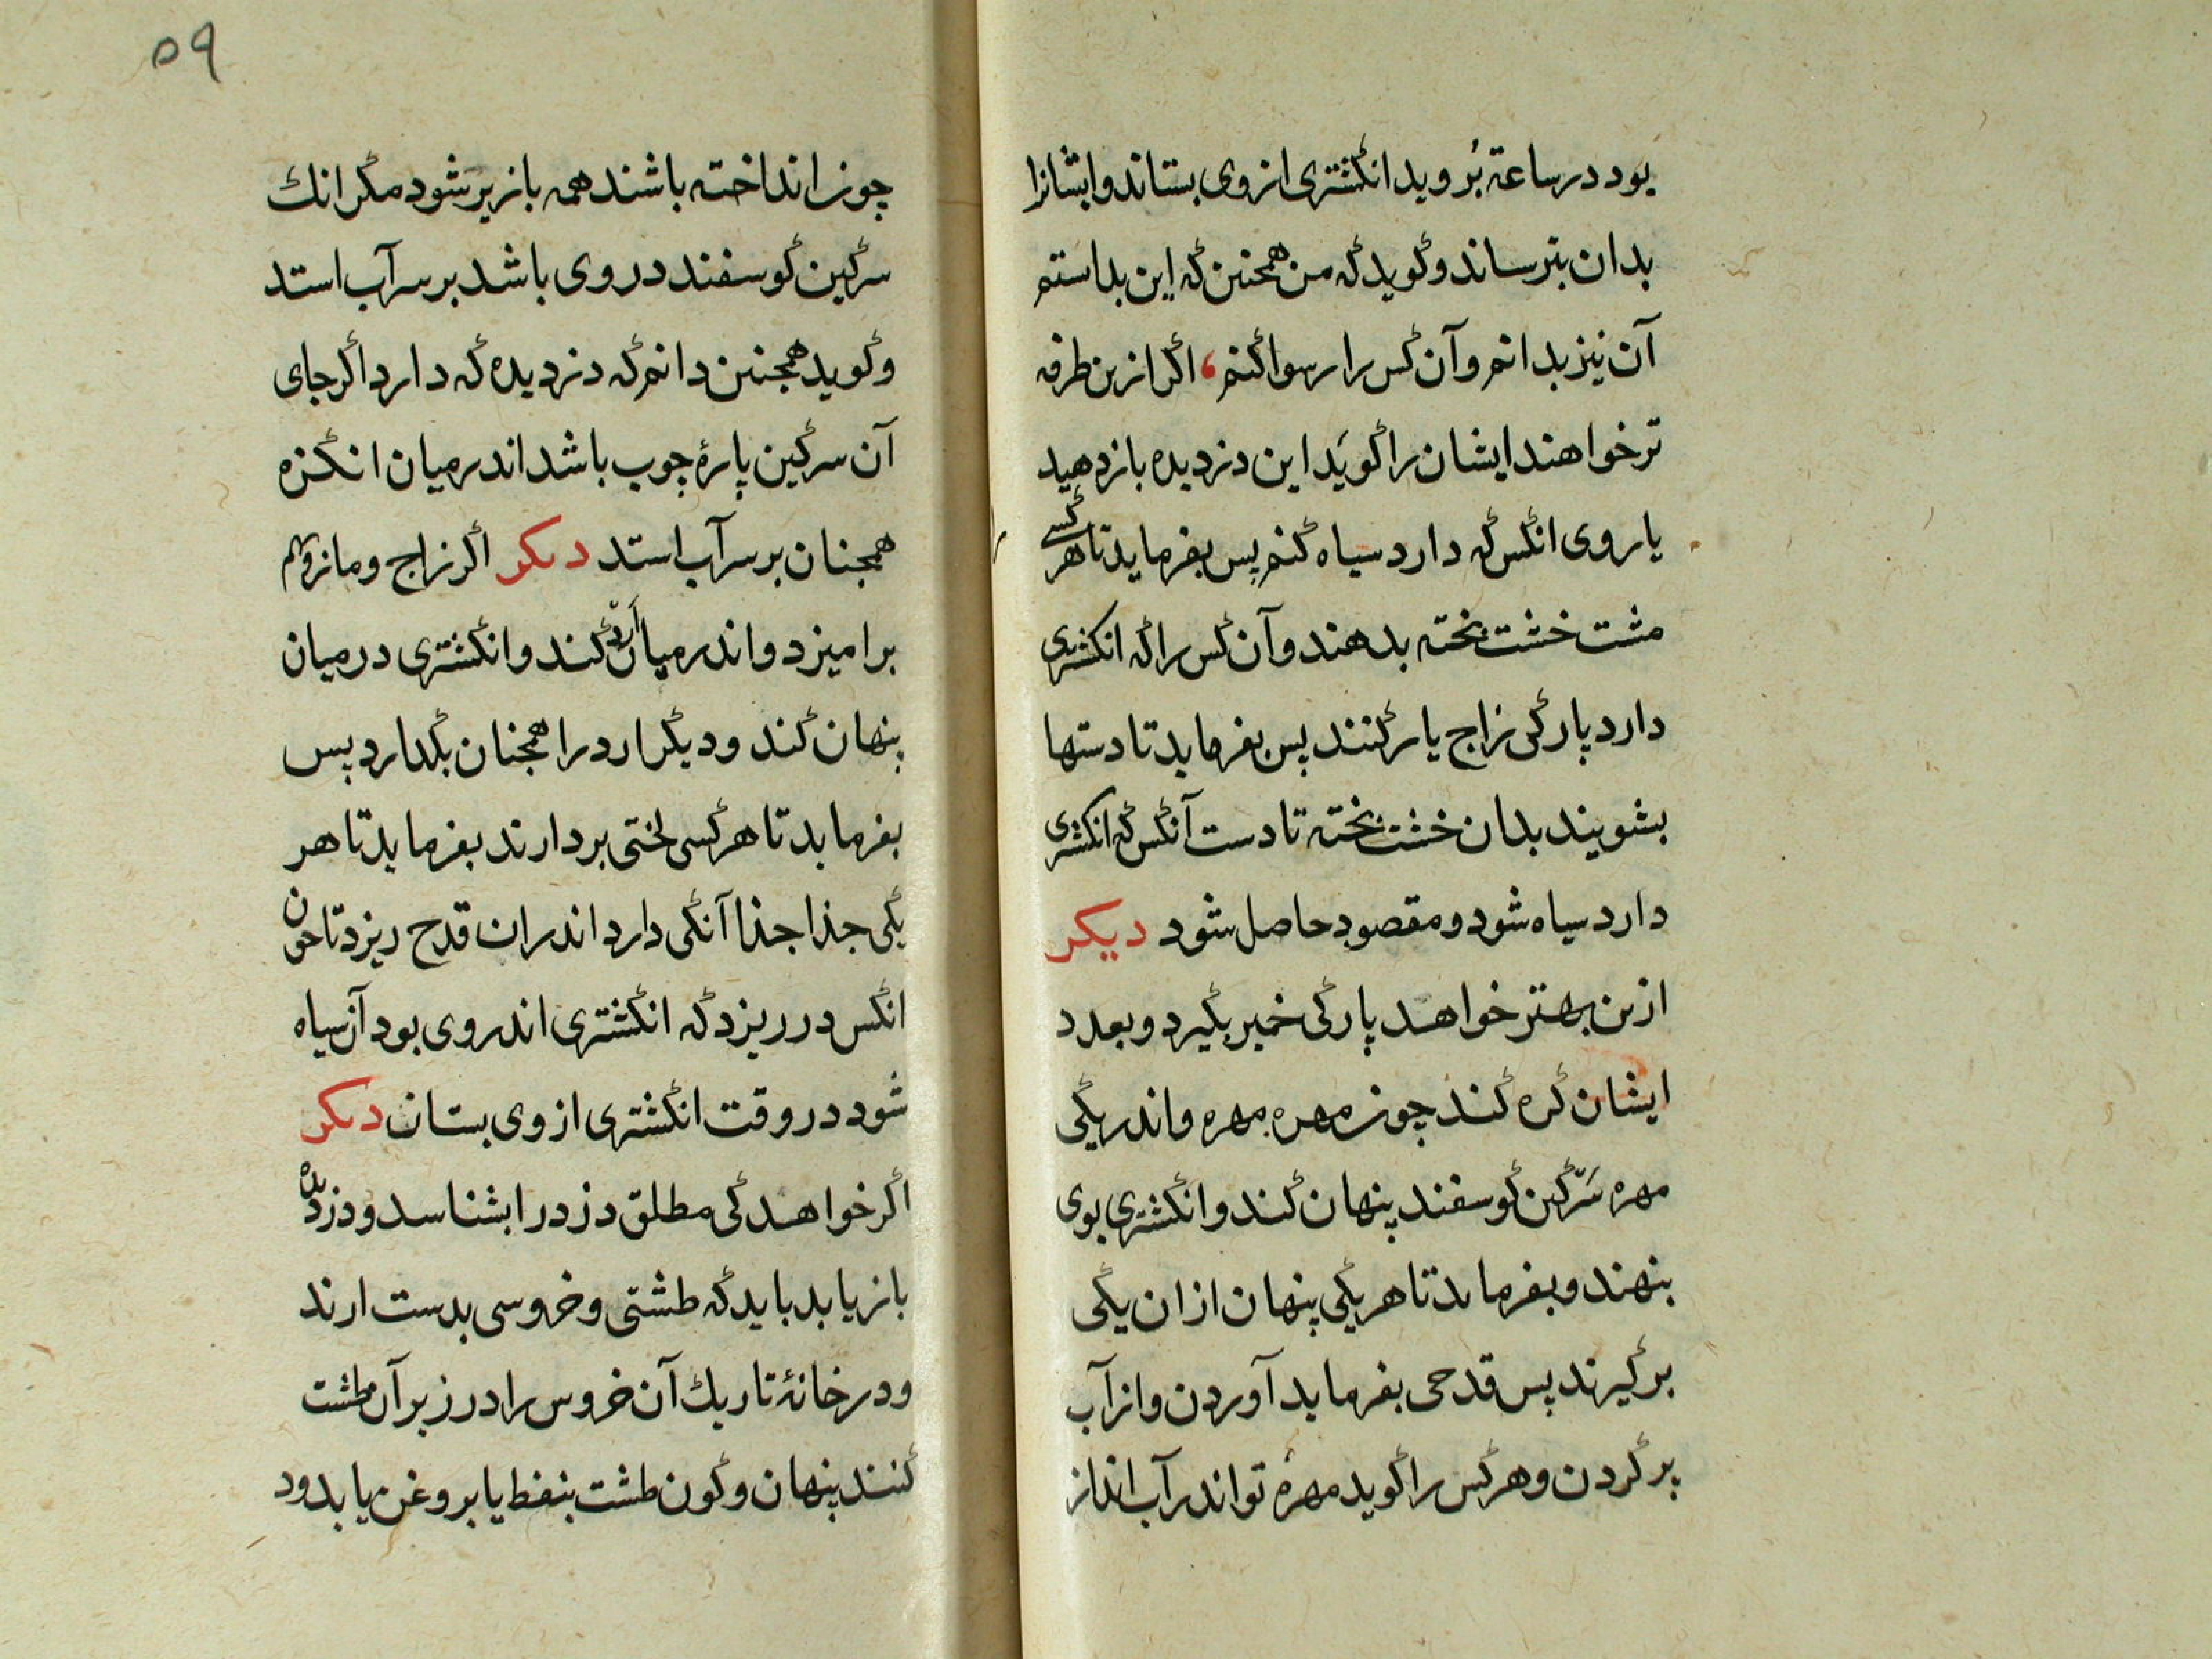 بود در ساعة بُروید انکشتری از وی بستاند و ایشانرا
بدان بترساند و کوید که من همجنین که این بداستم
آن نیز بدانم و آن کس را رسوا کنم ، اکر ازین طرفه
تر خواهند ایشان را کویَد این دزدیده باز دهید
یا روی انکس که دارد سیاه کنم بس بفرماید تا هر کسی
مشت خشت بخته بدهند و آن کس را که انکشتری
دارد پارکی زاج یار کنند پس بفرماید تا دستها
بشویند بدان خشت بخته تا دست آنکس که انکشتری
دارد سیاه شود و مقصود حاصل شود دیکر
ازین بهتر خواهد پارکی خمیر بکیرد و بعدد
ایشان کره کند چون مهره مهره و اندر یکی
مهره سَرکین کوسفند پنهان کند و انکشتری بوی
بنهند و بفرماید تا هر یکی پنهان ازان یکی
بر کیرند پس قدحی بفرماید آوردن و از آب
پر کردن و هر کس را کوید مهرهٔ تو اندر آب انداز
٥٩
چون انداخته باشند همه باز یر شود مکر انك
سرکین کوسفند در وی باشد بر سر آب استد
و کوید همجنین دانم که دزدیده که دارد اکر جای
آن سرکین پارهٔ چوب باشد اندر میان انکزه
همجنان بر سر آب استد دیکر اکر زاج و مازو بهم
برامیزد و اندر میان آرد کند و انکشتری در میان
پنهان کند و دیکر ارد را همجنان بکدارد پس
بفرماید تا هر کسی لختی بردارند بفرماید تا هر
یکی جذا جذا آنکی دارد اندران قدح ریزد تا چون
انکس در ریزد که انکشتری اندر وی بود آن سیاه
شود در وقت انکشتری از وی بستان دیکر
اکر خواهد کی مطلق دزد را بشناسد و دزدیده
باز یابد باید که طشتی و خروسی بدست ارند
و در خانهٔ تاریك آن خروس را در زیر آن طشت
کنند پنهان و کون طشت بنفط یا بروغن یا بدود